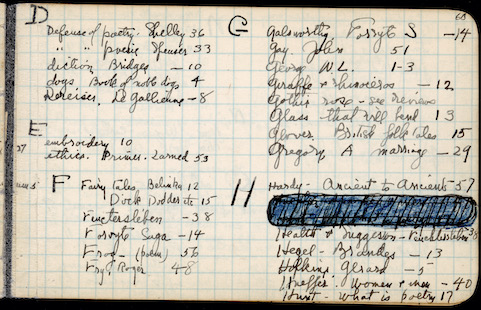 D
Defense of poetry. Shelley 36
" " poesie Spenser 33
diction Bridges - 10
dogs Book of noble dogs 4
De Gallienne - 8
E
embroidery 10
ethics. Primer. Larned 53
F Fairy tales, Belinka 12
Dick Dodders etc 15
Feuchtersleben - 38
Forsyte Saga - 14
Frog - (poem) 56
Fry, Roger 48
60
G Galsworthy Forsyte S - 14
Gay John 51
George W.L. 1-3
Giraffe & rhinoceros - 12
Gothic rose - see reviews
Glass that will bend 13
Glover. British folk tales 15
Gregory A marriage - 29
H Hardy - Ancient to Ancients 57
Health & Suggestion - Feuchtersleben 38
Hegel - Brandes - 13
Hopkins Gerard - 5
Hueffer. Women & men - 40
Hunt - what is poetry 17